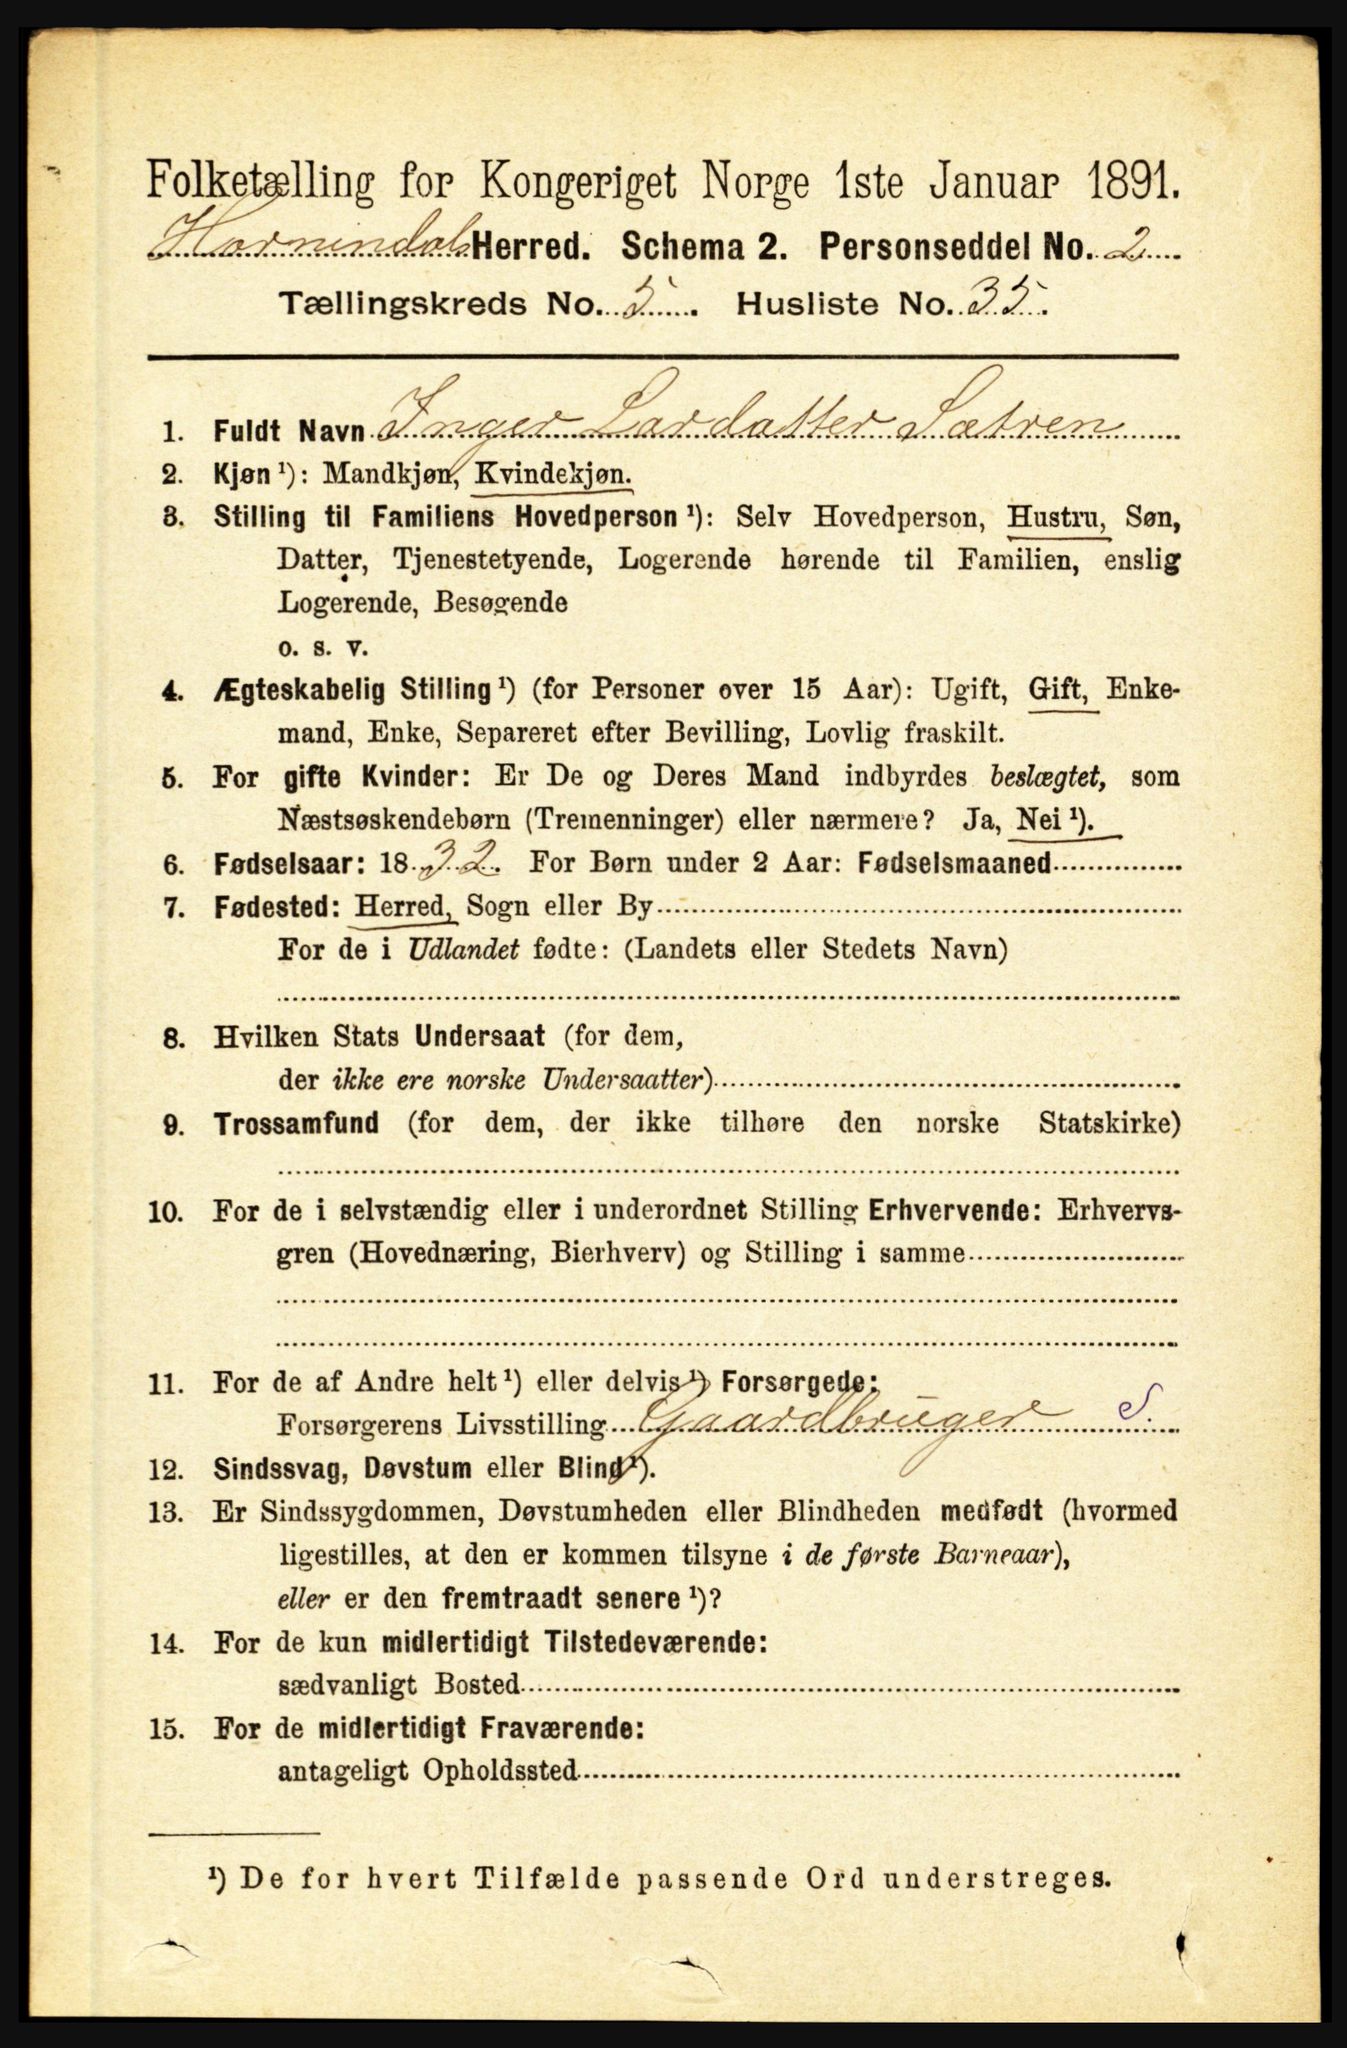 Folketælling for Kongeriget Norge 1ste Januar 1891.
Hornindals Herred. Schema 2. Personseddel No. 2
Tællingskreds No. 5. Husliste No. 35.
1. Fuldt Navn Inger Lardatter Sætren
2. Kjøn ¹): Mandkjøn, Kvindekjøn.
3. Stilling til Familiens Hovedperson ¹): Selv Hovedperson, Hustru, Søn,
Datter, Tjenestetyende, Logerende hørende til Familien, enslig
Logerende, Besøgende
o. s. v.
4. Ægteskabelig Stilling ¹) (for Personer over 15 Aar): Ugift, Gift, Enke-
mand, Enke, Separeret efter Bevilling, Lovlig fraskilt.
5. For gifte Kvinder: Er De og Deres Mand indbyrdes beslægtet, som
Næstsøskendebørn (Tremenninger) eller nærmere? Ja, Nei ¹).
6. Fødselsaar: 1832. For Børn under 2 Aar: Fødselsmaaned
7. Fødested: Herred, Sogn eller By
For de i Udlandet fødte: (Landets eller Stedets Navn)
8. Hvilken Stats Undersaat (for dem,
der ikke ere norske Undersaatter)
9. Trossamfund (for dem, der ikke tilhøre den norske Statskirke)
10. For de i selvstændig eller i underordnet Stilling Erhvervende: Erhvervs-
gren (Hovednæring, Bierhverv) og Stilling i samme
11. For de af Andre helt ¹) eller delvis ¹) Forsørgede:
Forsørgerens Livsstilling Gaardbruger S.
12. Sindssvag, Døvstum eller Blind ¹).
13. Er Sindssygdommen, Døvstumheden eller Blindheden medfødt (hvormed
ligestilles, at den er kommen tilsyne i de første Barneaar),
eller er den fremtraadt senere ¹)?
14. For de kun midlertidigt Tilstedeværende:
sædvanligt Bosted
15. For de midlertidigt Fraværende:
antageligt Opholdssted
¹) De for hvert Tilfælde passende Ord understreges.